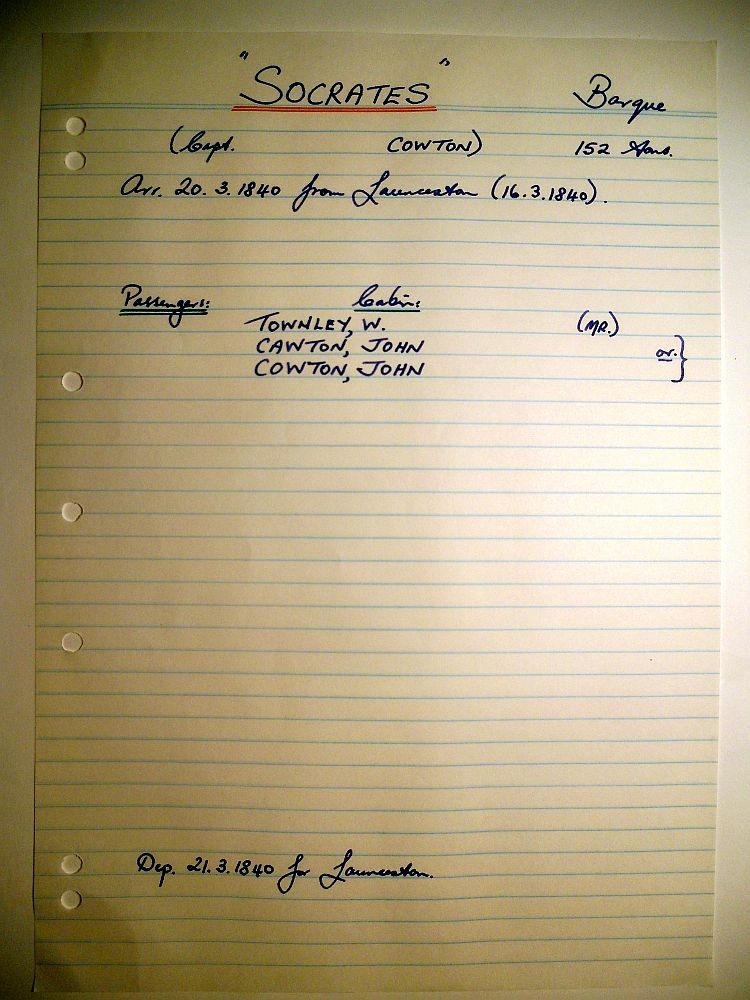 "SOCRATES" Barque
(Capt. COWTON) 152 tons.
Arr. 20.3.1840 from Launceston (16.3.1840).
Passengers: Cabin:
TOWNLEY, W. (MR.)
CAWTON, JOHN
or. }
COWTON, JOHN
Dep. 21.3.1840 for Launceston.